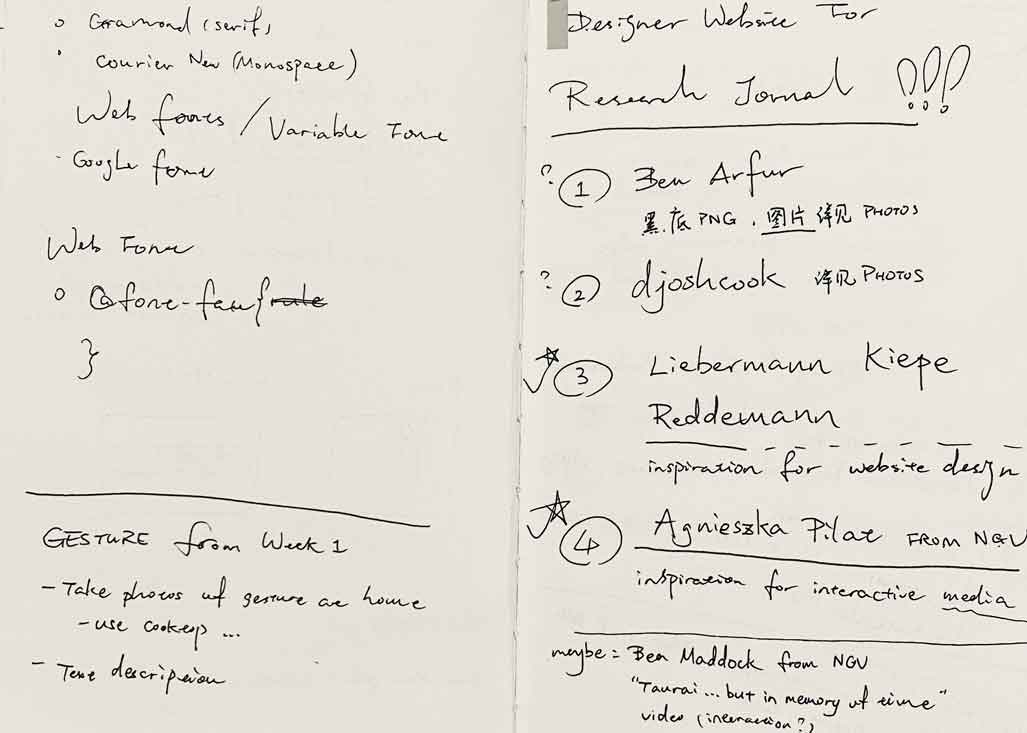 Gramond (serif)
Courier New (Monospace)
Web fonts / Variable Font
Google font
Web Font
@font-face { rule
}
GESTURE from Week 1
- Take photos of gesture at home
- use cooktop ...
- Text description
Designer Website For
Research Jornal !!!
? ① Ben Arfur
黑底 PNG, 图片详见 PHOTOS
? ② djoshcook 详见 PHOTOS
③ Liebermann Kiepe
Reddemann
inspiration for website design
④ Agnieszka Pilat FROM NGV
inspiration for interactive media
maybe = Ben Maddock from NGV
"Taurai ... but in memory of time"
video (interaction?)